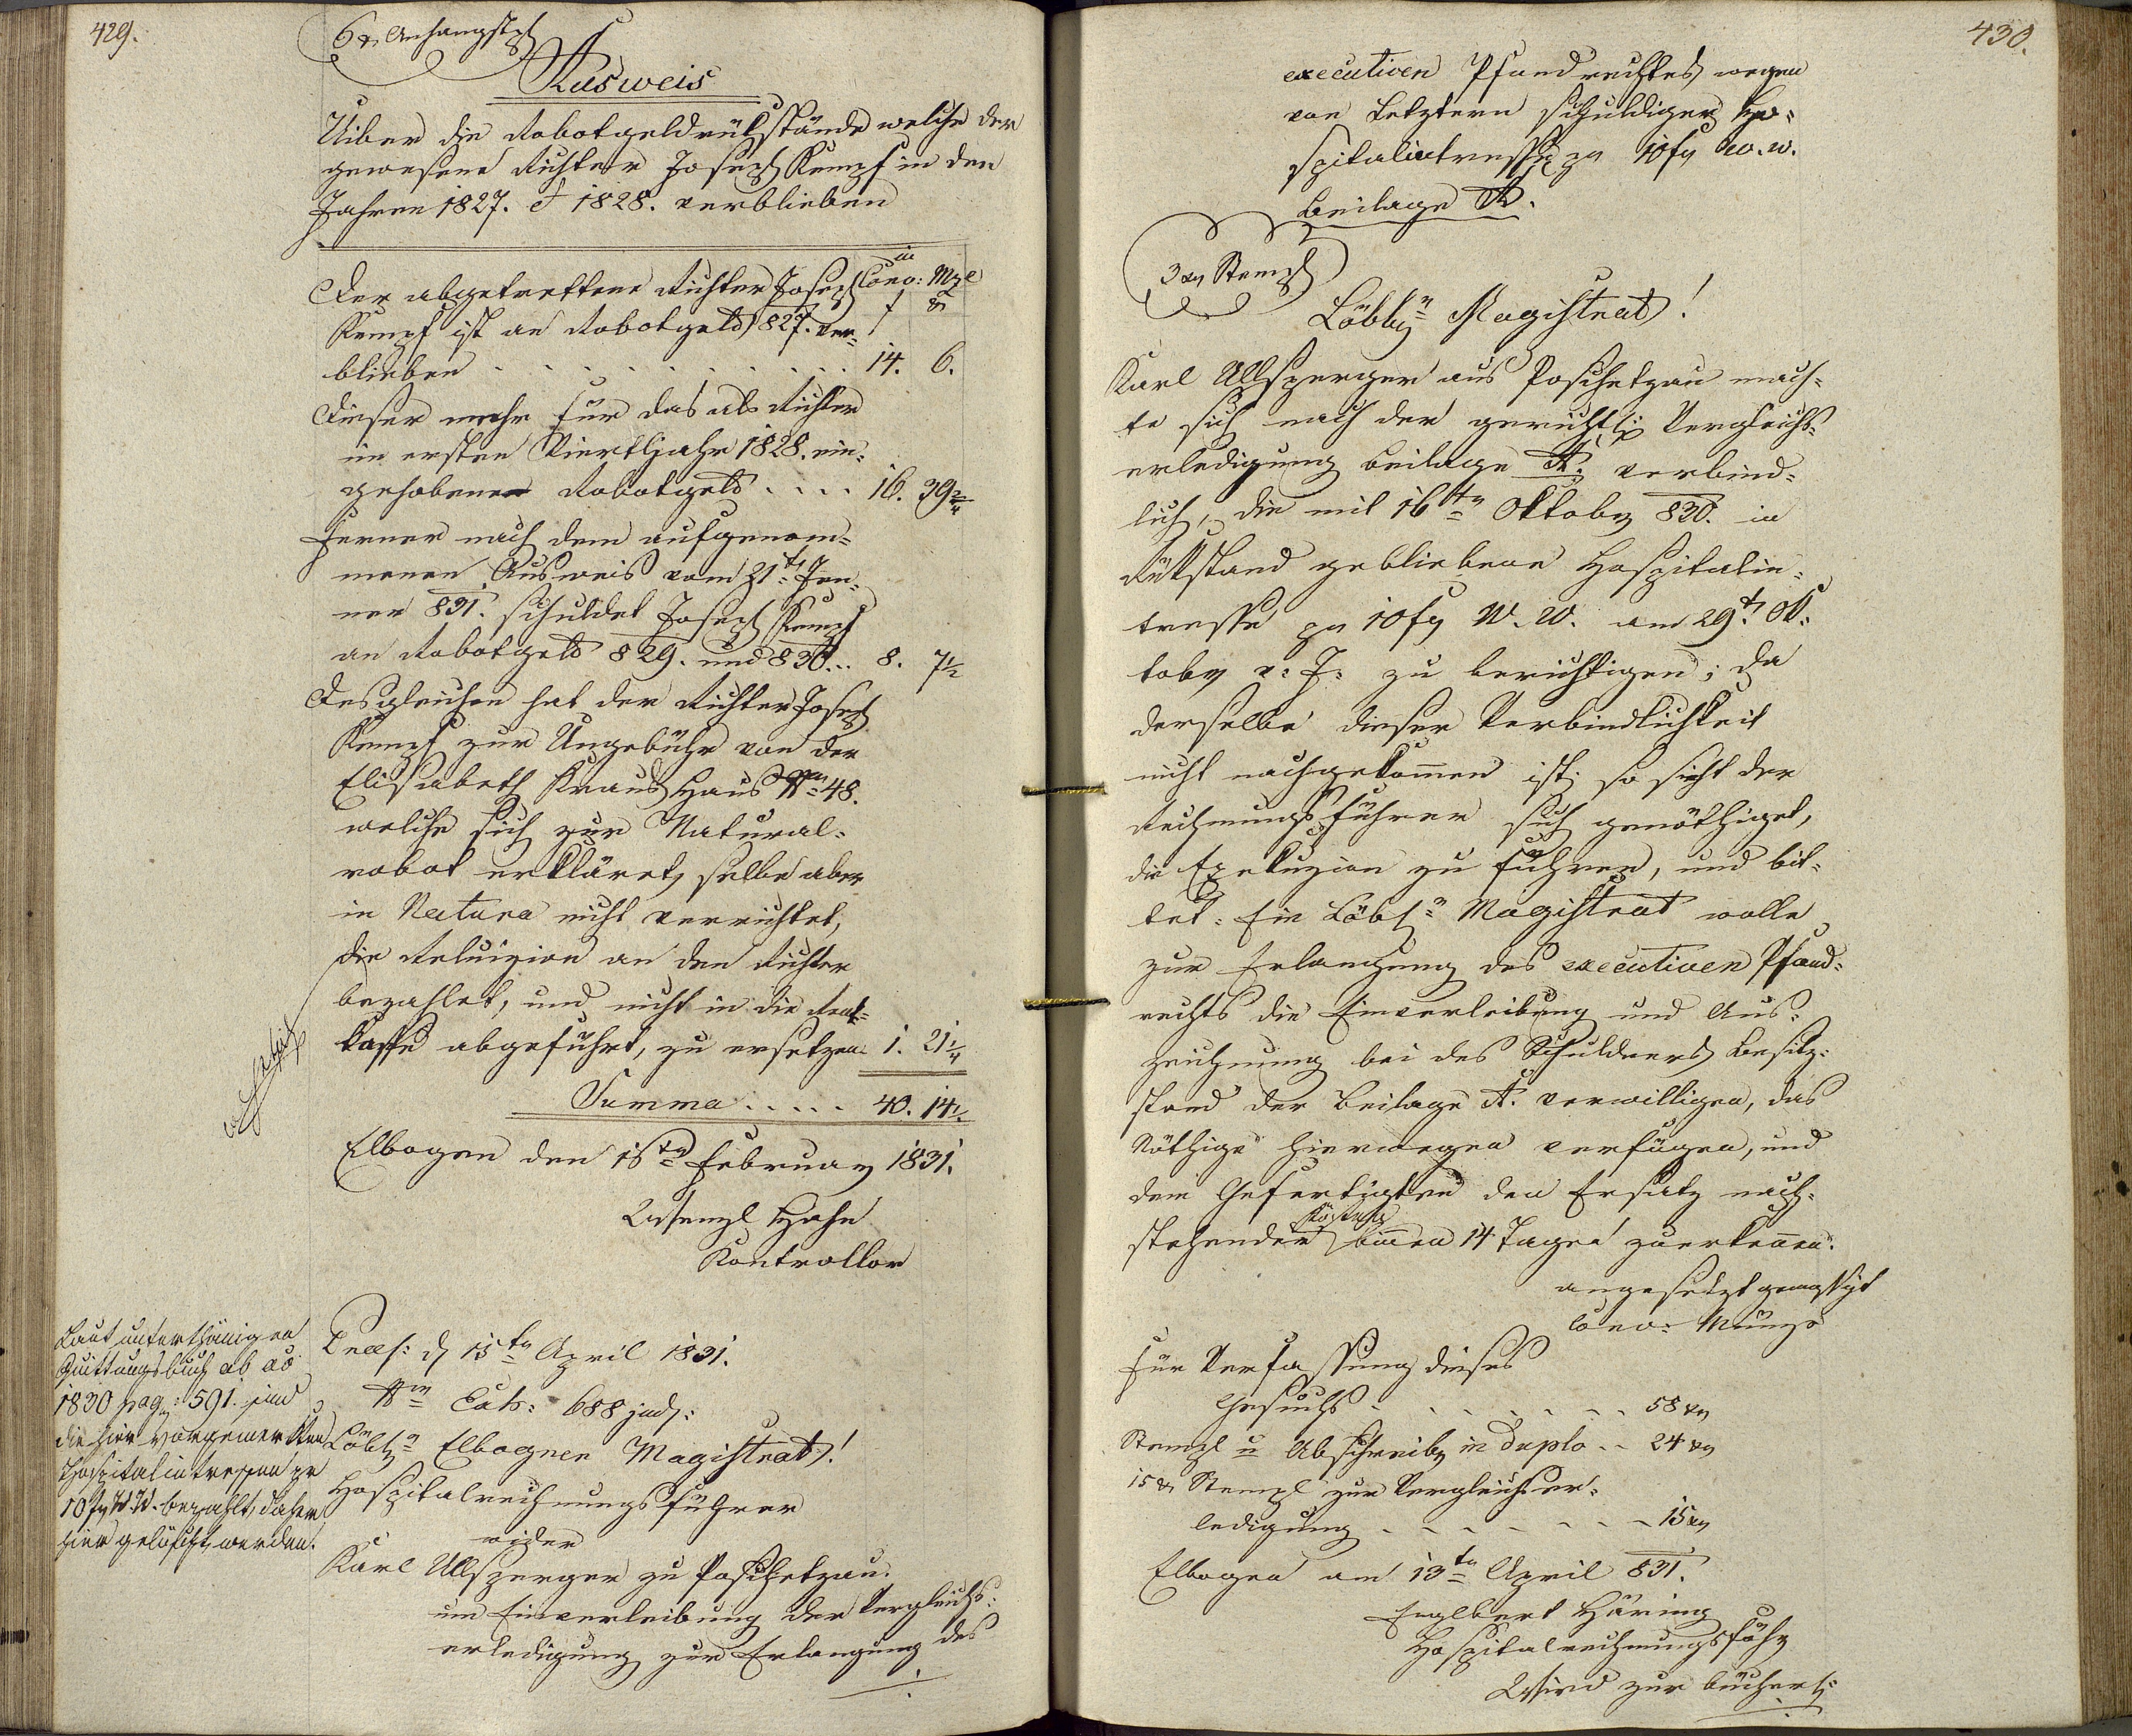 429.
6 xr Anhangstpl
Ausweis
Uiber die Robotgeldrükstände welche der
gewesene Richter Joseph Kempf in den
Jahren 1827. & 1828. verblieben
in
Conv: Mze
f xr
Der abgetrettene Richter Joseph
Kempf ist an Robotgeld 827. ver-
blieben . . . . . . . . . 14. 6.
Dieser mehr für das als Richter
im ersten Viertljahr 1828. ein-
gehobene Robotgeld . . . . 16. 39 2/4
Ferner nach dem aufgenom-
menen Ausweis vom 21t Jen-
ner 831. schuldet Joseph Kempf
an Robotgeld 829. und 830... 8. 7 1/2
Desgleichen hat der Richter Joseph
Kempf zur Ungebühr von der
Elisabeth Kraus Haus Nro 48.
welche sich zur Natural-
robot erkläret, selbe aber
in Natura nicht verrichtet,
die Reluizion an den Richter
bezahlet, und nicht in die Rent-
kasse abgeführt, zu ersetzen 1. 21 1/4
Summa ..... 40. 14 1/4
Elbogen den 15ten Februar 1831.
Wenzl Hahn
Kontrollor
Laut unterthänigen
Quittungsbuch ab ao
1830 pag: 591. sind
die hier vorgemerkten
Hospitalintressen pr
10 fr W. W. bezahlt, daher
hier gelöscht werden.
Praes: d 15tn April 1831.
Nro Exh: 688 jud:
Löbl: Elbogner Magistrat!
Hospitalrechnungsführer
wider
Karl Ullsperger zu Poschetzau.
um Einverleibung der Vergleichs-
erledigung zur Erlangung des
./.
430.
executiven Pfandrechtes wegen
von Letztern schuldiger Ho-
spitalintresse pr 10 fr W. W.
Beilage A.
3 xr Stempl
Löbl: Magistrat!
Karl Ullsperger aus Poschetzau mach-
te sich nach der gerichtl: Vergleichs-
erledigung Beilage A. verbind-
lich, die mit 16tn Oktober 830. in
Rükstand gebliebene Hospitalin-
tresse pr 10 fr W. W. am 29t Ok-
tober v: J: zu berichtigen; da
derselbe dieser Verbindlichkeit
nicht nachgekommen ist: so sieht der
Rechnungsführer sich genöthiget,
die Exekuzion zu führen, und bit-
tet: Ein Löbl: Magistrat wolle
zur Erlangung des executiven Pfand-
rechts die Einverleibung und Aus-
zeichnung bei des Schuldners Besitz-
stand der Beilage A. verwilligen, das
Nöthige hierwegen verfügen, und
dem Gefertigten den Ersatz nach-
stehender Kösten binnen 14 Tagen zuerkennen.
angesetzt
Conv: Münze
Für Verfassung dieses
Gesuchs . . . . . . . 58 xr
Stempl u Abschreiber in duplo . . 24 xr
15 xr Stempl zur Vergleichser-
ledigung . . . . . . . 15 xr
Elbogen am 13tn April 831.
Englbert Häring
Hospitalrechnungsführ
Wird zur bücherl:
./.